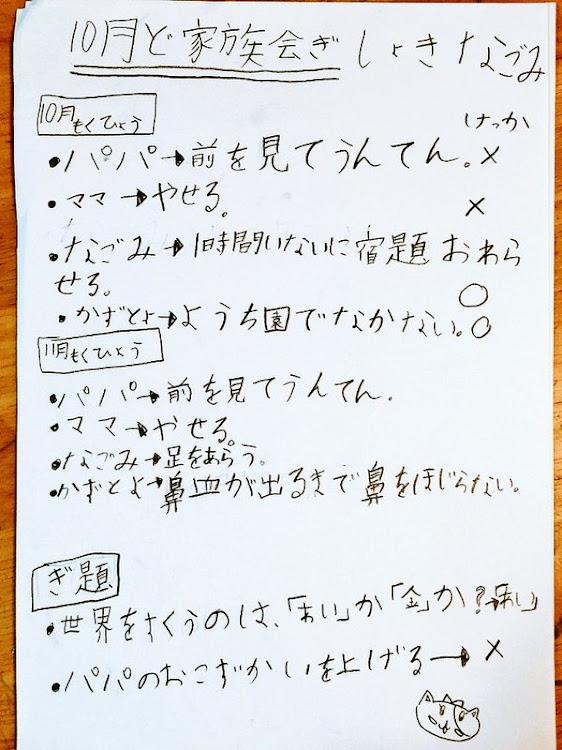 10月ど家族会ぎ しょき なごみ
10月もくひょう
けっか
・パパ→前を見てうんてん。×
・ママ→やせる。 ×
・なごみ→1時間いないに宿題おわら
せる。 ○
・かずとよ→ようち園でなかない。○
11月もくひょう
・パパ→前を見てうんてん.
・ママ→やせる。
・なごみ→足をあらう。
・かずとよ→鼻血が出るまで鼻をほじらない。
ぎ題
・世界をすくうのは、「あい」か「金」か?→「あい」
・パパのおこずかいを上げる→×